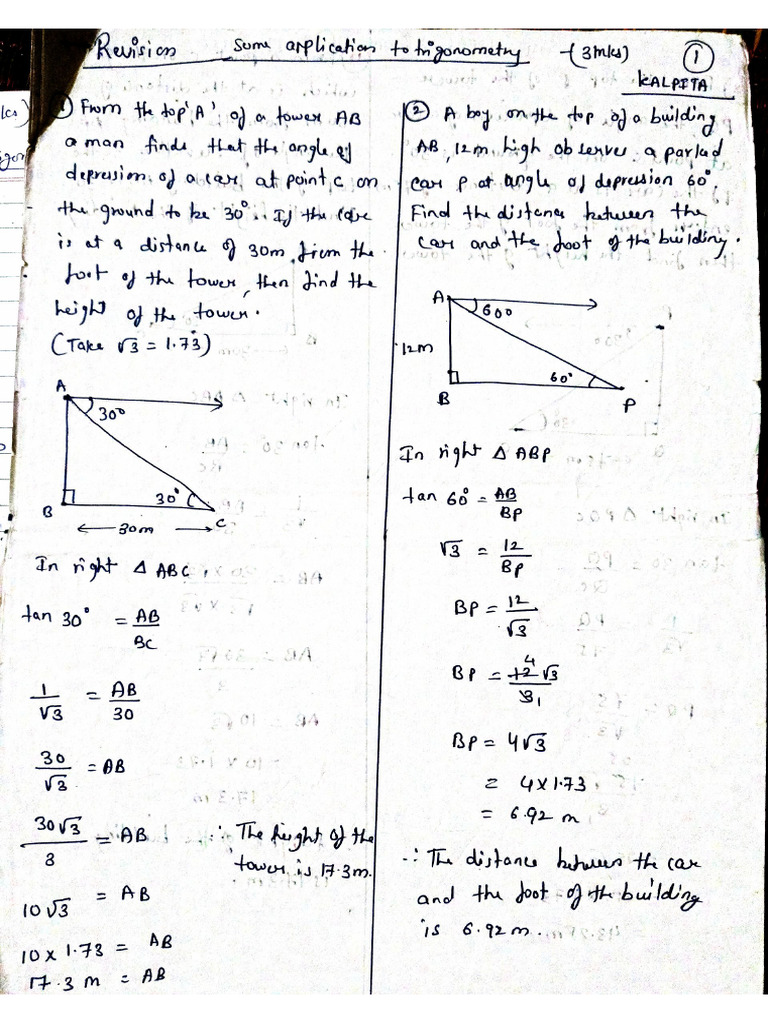 Revision some application to trigonometry -(3mks) ①
KALPITA
① From the top 'A' of a tower AB
a man finds that the angle of
depression of a car at point C on
the ground to be 30°. If the car
is at a distance of 30m from the
foot of the tower, then find the
height of the tower.
(Take √3 = 1.73)
A
30°
30°
B
C
← 30m →
In right Δ ABC,
tan 30° = AB/BC
1/√3 = AB/30
30/√3 = AB
30√3/3 = AB
10√3 = AB
10 x 1.73 = AB
17.3 m = AB
∴ The height of the
tower is 17.3m.
② A boy on the top of a building
AB, 12m high observes a parked
car P at angle of depression 60°.
Find the distance between the
car and the foot of the building.
A
60°
12m
60°
B
P
In right Δ ABP
tan 60° = AB/BP
√3 = 12/BP
BP = 12/√3
BP = 12 4 √3/3 1
BP = 4√3
= 4 x 1.73
= 6.92 m
∴ The distance between the car
and the foot of the building
is 6.92 m.